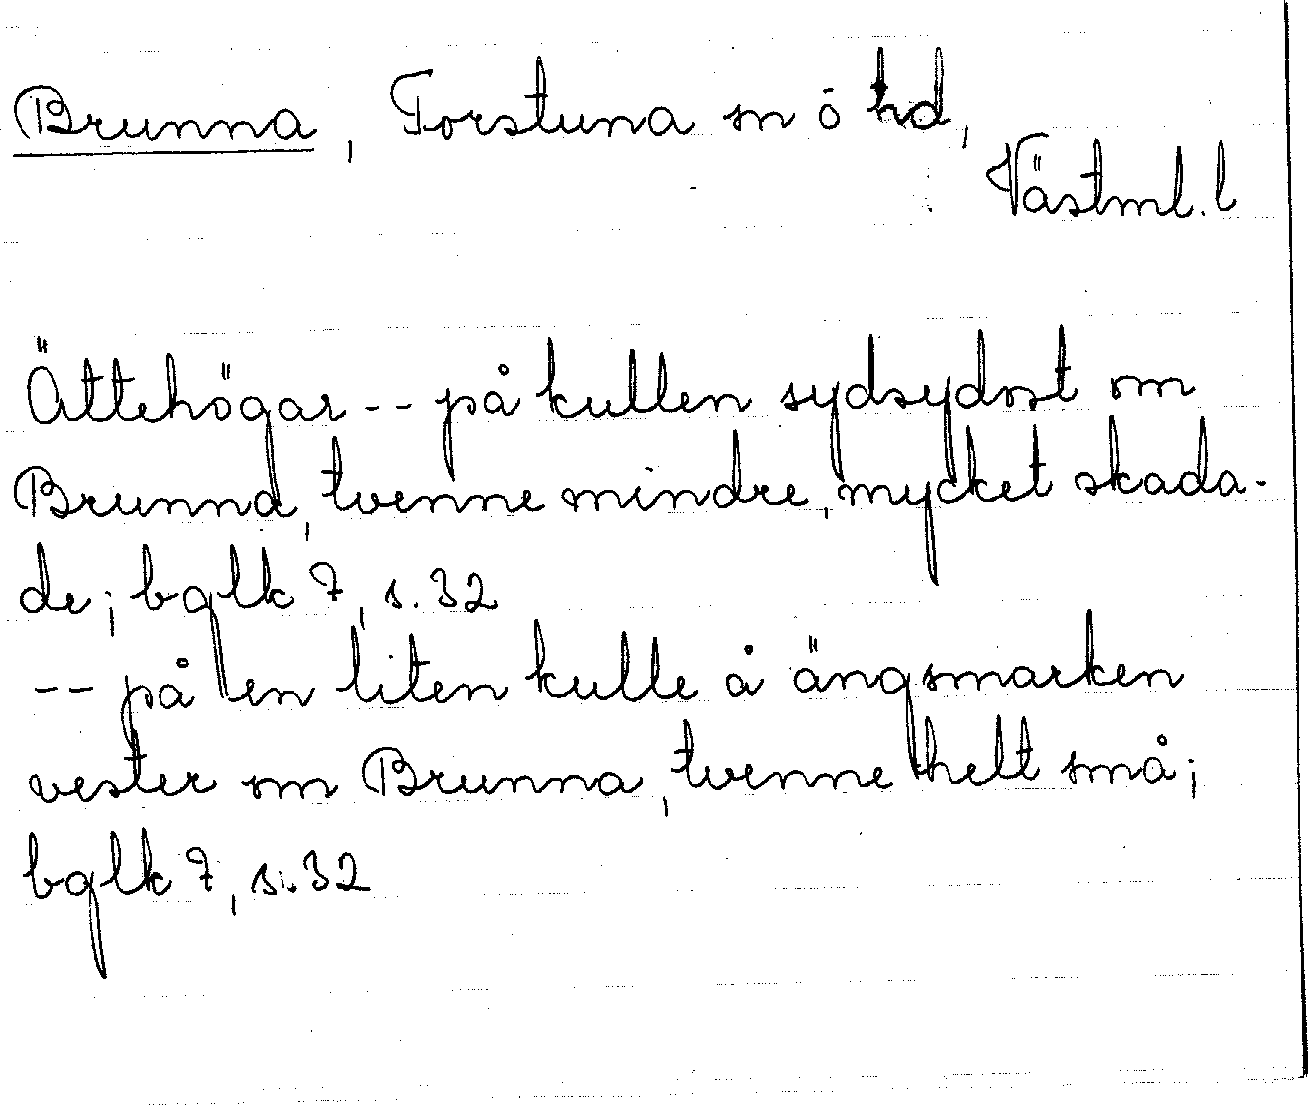 Brunna, Torstuna sn ö hd,
Västml. l
Ättehögar -- på kullen sydsydost om
Brunna, tvenne mindre, mycket skada-
de; bglk 7, s. 32
-- på en liten kulle å ängsmarken
vester om Brunna, tvenne helt små;
bglk 7, s. 32